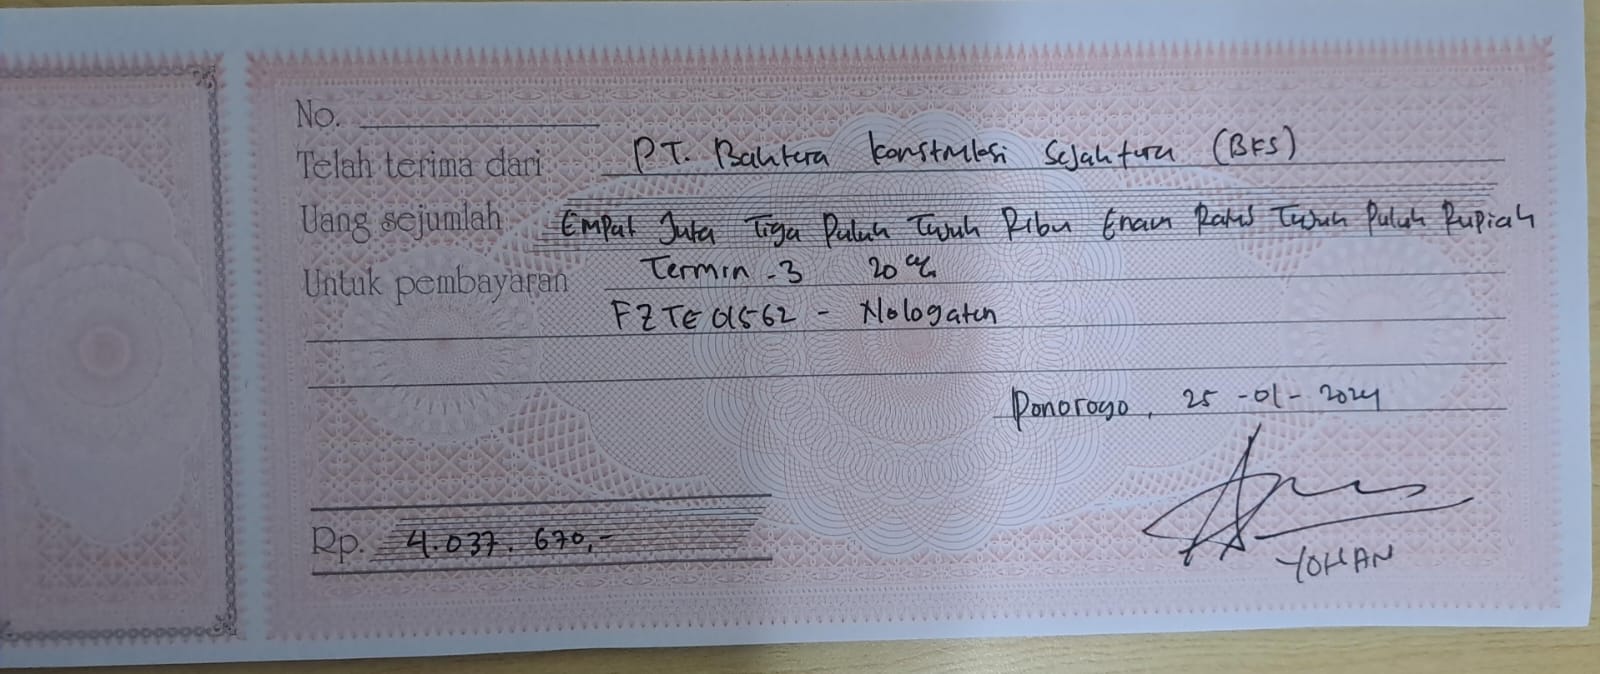 No.
Telah terima dari PT. Bahtera Konstruksi Sejahtera (BKS)
Uang sejumlah Empat Juta Tiga Puluh Tujuh Ribu Enam Ratus Tujuh Puluh Rupiah
Untuk pembayaran Termin -3 20 %
FZTE01562 - Nologaten
Ponorogo, 25 -01- 2024
Rp. 4.037.670,-
YOHAN